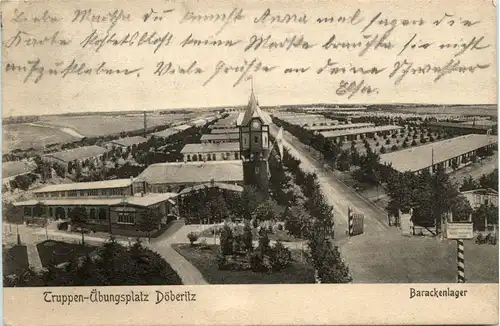 Liebe Martha du kannst Anna mal sagen die
Karte Schlettblock seine Martha brauchte sie nicht
aufzuklären. Viele Grüße an deine Schwester
Elsa.
Truppen-Übungsplatz Döberitz
Barackenlager